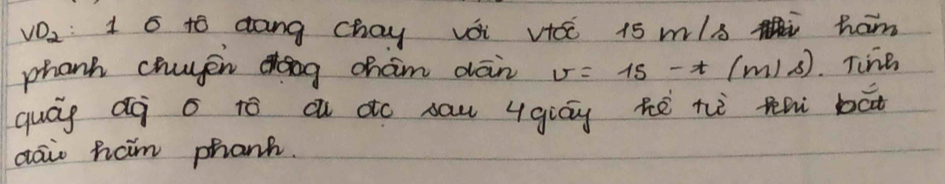 VD2: 1 ô tô đang chạy với vtốc 15 m/s thì hãm
phanh chuyển động chậm dần v = 15 - t (m/s). Tính
quãng đg ô tô đi đc sau 4 giây kể từ khi bắt
đầu hãm phanh.